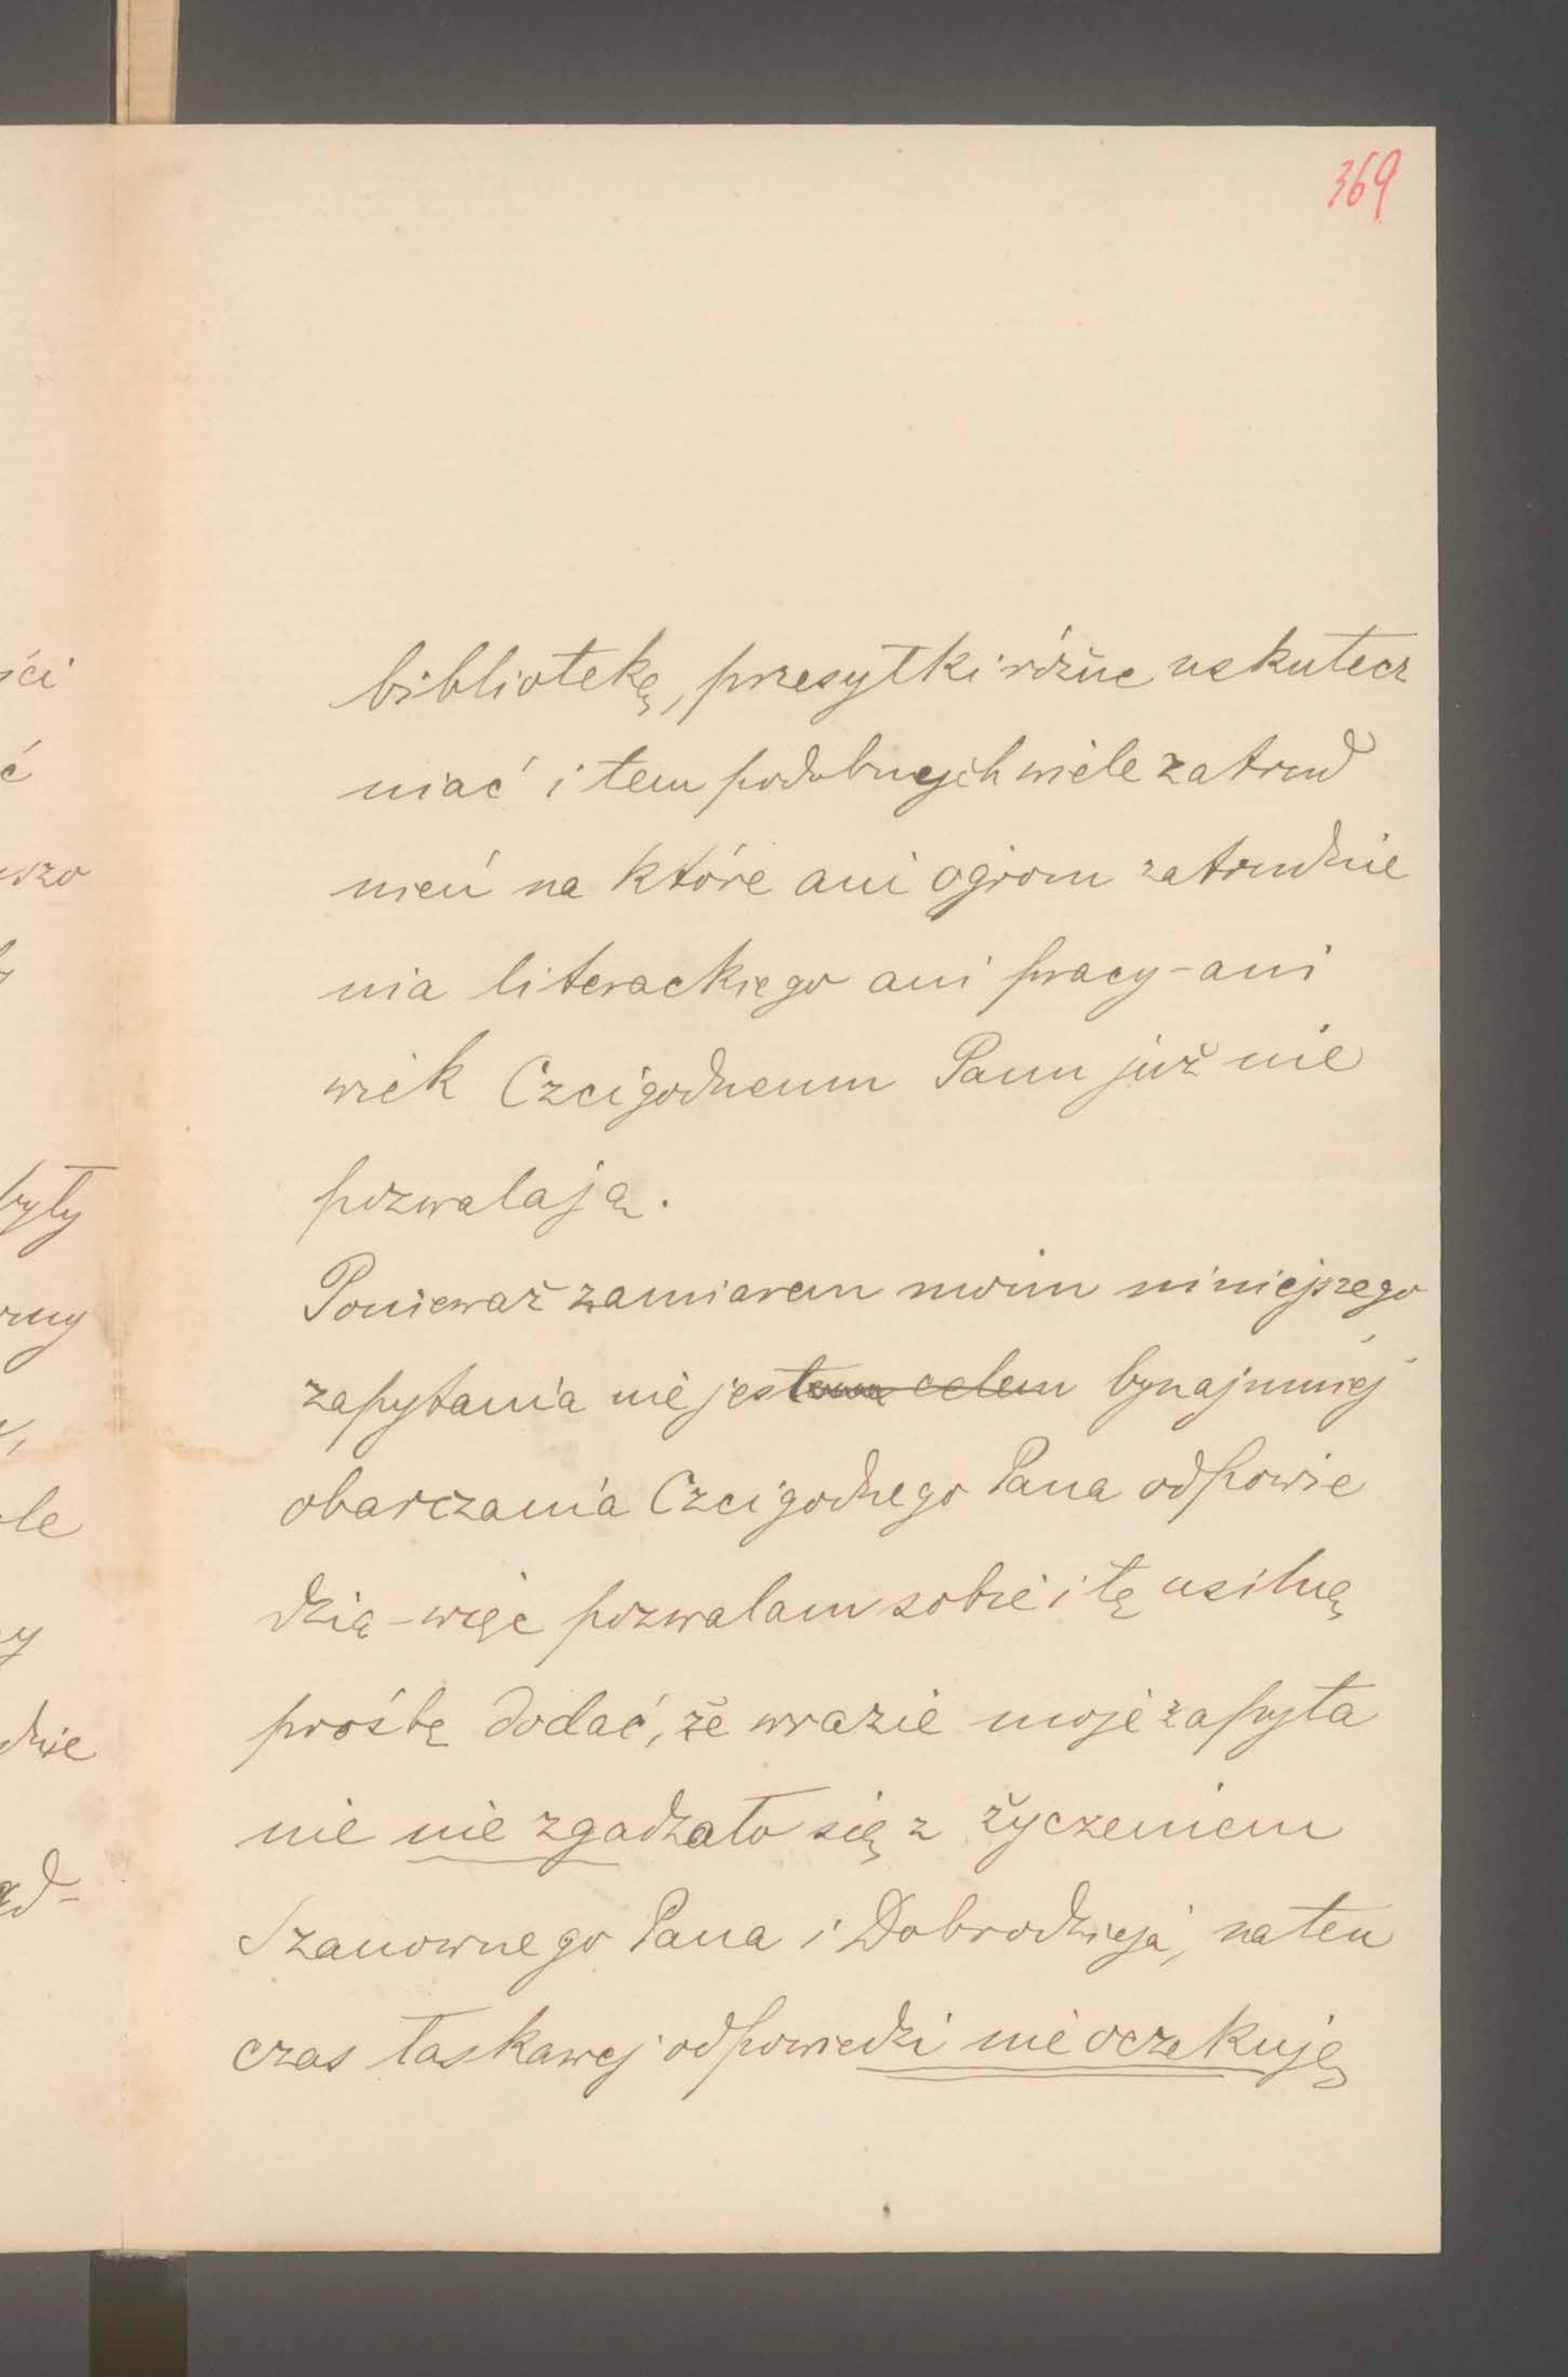 369
bibliotekę, przesyłki różne uskutecz
niać i tem podobnych wiele zatrud
nień na które ani ogrom zatrudnie
nia literackiego ani pracy - ani
wiek Czcigodnemu Panu już nie
pozwalają.
Ponieważ zamiarem moim niniejszego
zapytania nie jestem celem bynajmniej
obarczania Czcigodnego Pana odpowie
dzią - więc pozwalam sobie i tę usilną
prośbę dodać, że wrazie moje zapyta
nie nie zgadzało się z życzeniem
Szanownego Pana i Dobrodzieja, naten
czas łaskawej odpowiedzi nie oczekuję